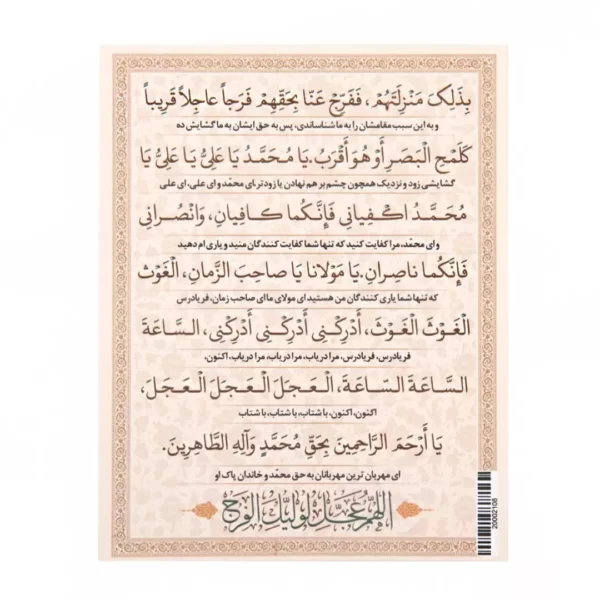 بِذَلِکَ مَنْزِلَتَهُمْ، فَفَرِّجْ عَنَّا بِحَقِّهِمْ فَرَجاً عاجِلاً قَرِیباً
و به این سبب مقامشان را به ما شناساندی، پس به حق ایشان به ما گشایش ده
کَلَمْحِ الْبَصَرِ أَوْ هُوَ أَقْرَبُ. یَا مُحَمَّدُ یَا عَلِیُّ یَا عَلِیُّ یَا
گشایشی زود و نزدیک همچون چشم بر هم نهادن یا زودتر، ای محمّد و ای علی، ای علی
مُحَمَّدُ اکْفِیانِی فَإِنَّکُما کافِیانِ، وَانْصُرانِی
و ای محمّد، مرا کفایت کنید که تنها شما کفایت کنندگان منید و یاری ام دهید
فَإِنَّکُما ناصِرانِ. یَا مَوْلانا یَا صاحِبَ الزَّمانِ، الْغَوْثَ
که تنها شما یاری کنندگان من هستید ای مولای ما ای صاحب زمان، فریادرس
الْغَوْثَ الْغَوْثَ، أَدْرِکْنِی أَدْرِکْنِی أَدْرِکْنِی، السَّاعَةَ
فریادرس، فریادرس، مرا دریاب، مرا دریاب، مرا دریاب، اکنون،
السَّاعَةَ السَّاعَةَ، الْعَجَلَ الْعَجَلَ الْعَجَلَ،
اکنون، اکنون، با شتاب، با شتاب، با شتاب
یَا أَرْحَمَ الرَّاحِمِینَ بِحَقِّ مُحَمَّدٍ وَآلِهِ الطَّاهِرِینَ.
ای مهربان ترین مهربانان به حق محمّد و خاندان پاک او
اللهم عجل لولیک الفرج
20002108